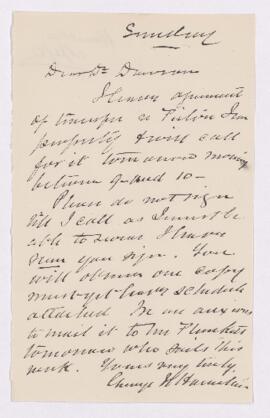 Sunday
Dear Dr Dawson
I leave agreement
of transfer of
property & will call
for it tomorrow morning
between 9 and 10 -
Please do not sign
till I call as I must be
able to swear I have
seen you sign. You
will observe one copy
must yet have schedule
attached. I am anxious
to mail it to Mr Plunkett
tomorrow who sails this
week. Yours very truly,
George